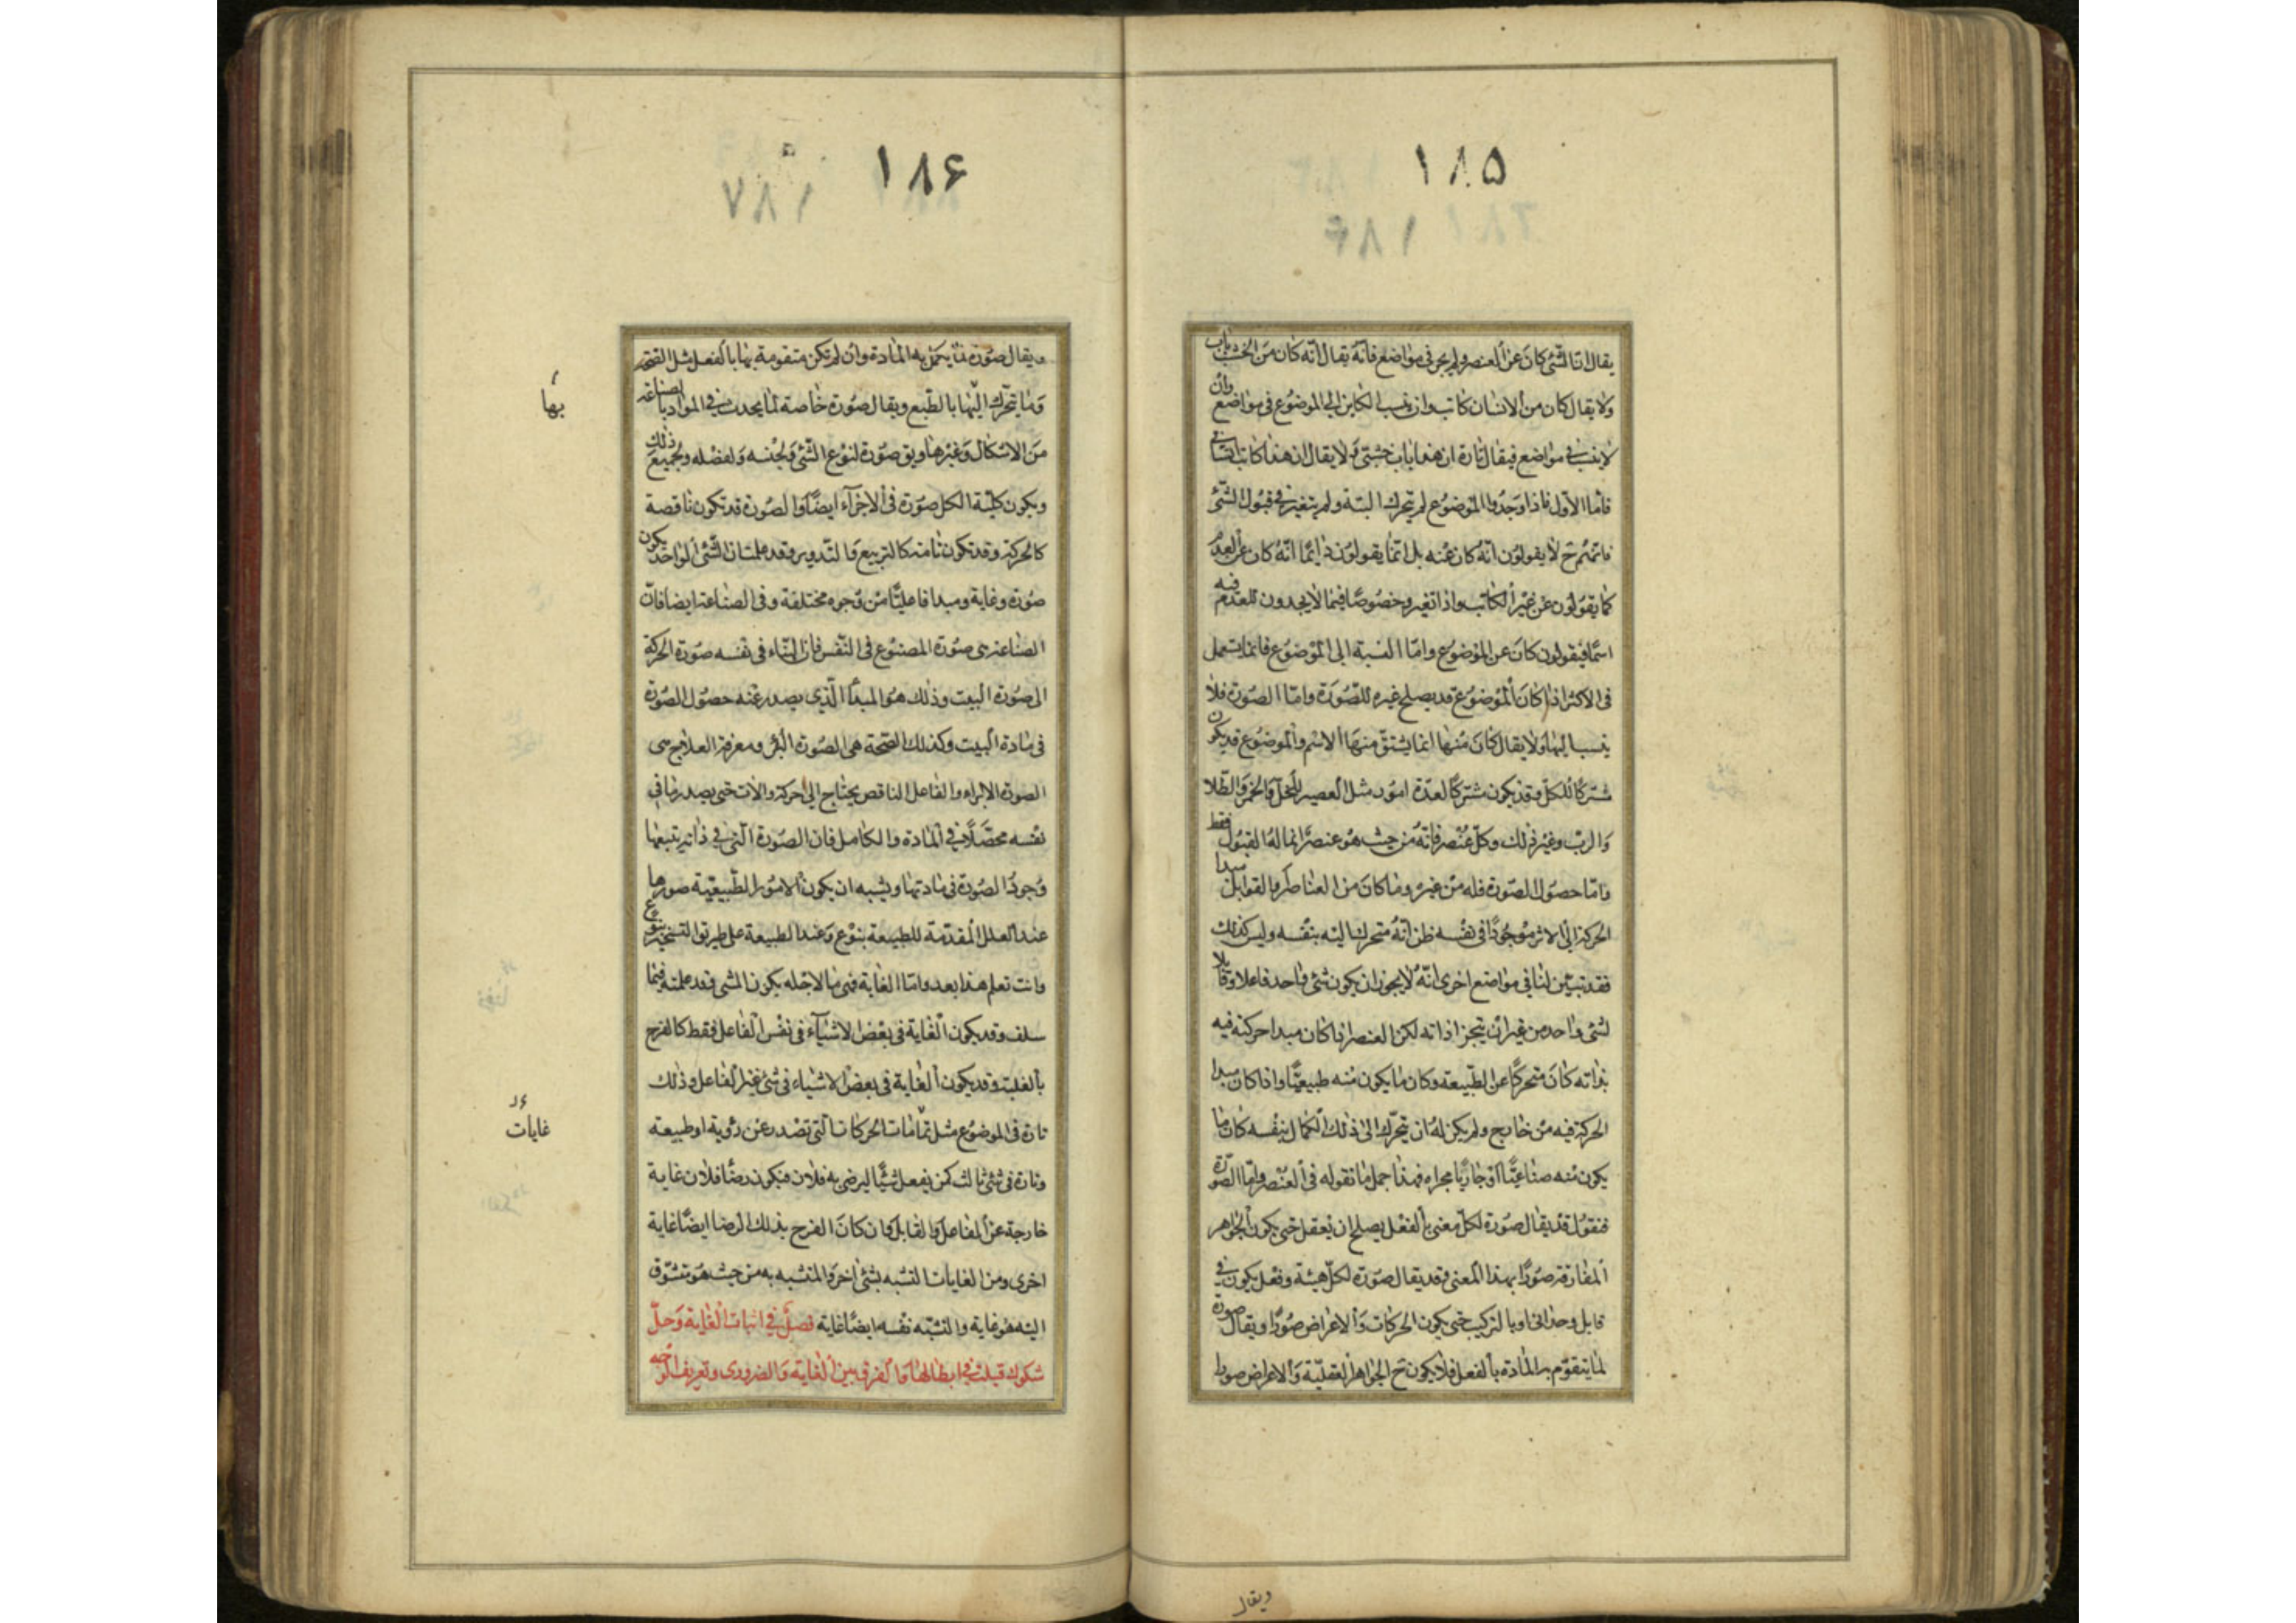 ١٨۵
يقال ان الشئ كان عن العنصر ولم يجز فى مواضع فانه يقال انه كان من الخشب باب
ولا يقال كان من الانسان كاتب وان ينسب الكاين الى الموضوع فى مواضع وان
لا ينسب فى مواضع فيقال تارة ان هذا باب خشبى ولا يقال ان هذا كاتب انسانى
فاما الاول فاذا وجدوا الموضوع لم يتحرك البتة ولم يتغير فى قبول الشئ
فانهم ح لا يقولون انه كان عنه بل انما يقولون دائما انه كان عن العدم
كما يقولون عن غير الكاتب واذا تغير وخصوصا فيما لا يجدون للعدم فيه
اسما فيقولون كان عن الموضوع واما النسبة الى الموضوع فانما يستعمل
فى الاكثر اذا كان الموضوع قد يصلح غيره للصورة واما الصورة فلا
ينسب اليها ولا يقال كان منها انما يشتق منها الاسم والموضوع قد يكون
مشتركا للكل وقد يكون مشتركا لعدة امور مثل العصير للخل والخمر والطلا
والرب وغير ذلك وكل عنصر فانه من حيث هو عنصر انما له القبول فقط
واما حصول الصورة فله من غيره وما كان من العناصر والقوابل مبدا
الحركة الى الاثر موجودا فى نفسه ظن انه متحرك اليه بنفسه وليس كذلك
فقد تبين لنا فى مواضع اخرى انه لا يجوز ان يكون شئ واحد فاعلا وقابلا
لشئ واحد من غير ان يتجزا ذاته لكن العنصر اذا كان مبدا حركته فيه
بذاته كان متحركا عن الطبيعة وكان ما يكون منه طبيعيا واذا كان مبدا
الحركة فيه من خارج ولم يكن له ان يتحرك الى ذلك الكمال بنفسه كان ما
يكون منه صناعيا او جاريا مجراه فهذا جمل ما نقوله فى العنصر واما الصورة
فنقول قد يقال صورة لكل معنى بالفعل يصلح ان يعقل حتى يكون الجواهر
المفارقة صورا بهذا المعنى وقد يقال صورة لكل هيئة وفعل يكون فى
قابل وحدانى او بالتركيب حتى يكون الحركات والاعراض صورا ويقال صورة
لما يتقوم به المادة بالفعل فلا يكون ح الجواهر العقلية والاعراض صورا
ويقال
١٨۶
ويقال صورة لما يكمل به المادة وان لم تكن متقومة بها بالفعل مثل الصحة
وما يتحرك اليها بالطبع ويقال صورة خاصة لما يحدث فى المواد بالصناعة
من الاشكال وغيرها ويق صورة لنوع الشئ ولجنسه ولفصله ولجميع ذلك
ويكون كلية الكل صورة فى الاجزاء ايضا والصورة قد تكون ناقصة
كالحركة وقد تكون تامة كالتربيع والتدوير وقد علمت ان الشئ الواحد يكون
صورة وغاية ومبدا فاعليا من وجوه مختلفة وفى الصناعة ايضا فان
الصناعة هى صورة المصنوع فى النفس فان البناء فى نفسه صورة الحركة
الى صورة البيت وذلك هو المبدأ الذى يصدر عنه حصول الصورة
فى مادة البيت وكذلك الصحة هى الصورة البرء ومعرفة العلاج هى
الصورة الابراء والفاعل الناقص يحتاج الى حركة والات حتى يصدر ما فى
نفسه محصلا فى المادة والكامل فان الصورة التى فى ذاته يتبعها
وجود الصورة فى مادتها ويشبه ان يكون الامور الطبيعية صورها
عند العلل المقدمة للطبيعة بنوع وعند الطبيعة على طريق التسخير بنوع
وانت تعلم هذا بعد واما الغاية فهى ما لاجله يكون الشئ وقد علمته فيما
سلف وقد يكون الغاية فى بعض الاشياء فى نفس الفاعل فقط كالفرح
بالغلبة وقد يكون الغاية فى بعض الاشياء فى شئ غير الفاعل وذلك
تارة فى الموضوع مثل تمامات الحركات التى تصدر عن روية او طبيعة
وتارة فى شئ ثالث كمن يفعل شيئا ليرضى به فلان فيكون رضا فلان غاية
خارجة عن الفاعل والقابل وان كان الفرح بذلك الرضا ايضا غاية
اخرى ومن الغايات التشبه بشئ اخر والمتشبه به من حيث هو متشوق
اليه هو غاية والتشبه نفسه ايضا غاية فصل فى اثبات الغاية وحل
شكوك قيلت فى ابطالها والفرق بين الغاية والضرورى وتعريف الوجه
بها
غايات